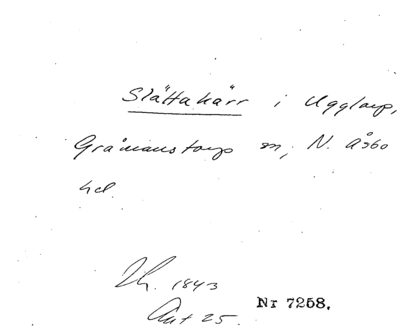 Slättakärr i Ugglarp,
Gråmanstorp sn, N. Åsbo
hd.
Lh. 1843
Ant 25. Nr 7258.